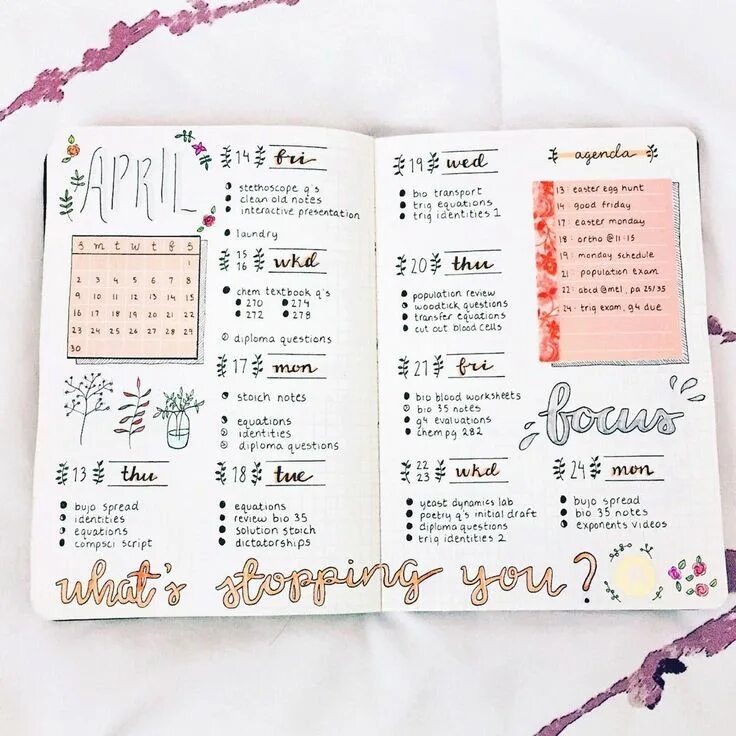 APRIL
s m t w t f s
1
2 3 4 5 6 7 8
9 10 11 12 13 14 15
16 17 18 19 20 21 22
23 24 25 26 27 28 29
30
13 thu
bujo spread
identities
equations
compsci script
14 fri
stethoscope q's
clean old notes
interactive presentation
laundry
15
16 wkd
chem textbook q's
270 274
272 278
diploma questions
17 mon
stoich notes
equations
identities
diploma questions
18 tue
equations
review bio 35
solution stoich
dictatorships
19 wed
bio transport
trig equations
trig identities 1
20 thu
population review
woodtick questions
transfer equations
cut out blood cells
21 fri
bio blood worksheets
bio 35 notes
g4 evaluations
chem pg 282
22
23 wkd
yeast dynamics lab
poetry q's initial draft
diploma questions
trig identities 2
agenda
13: easter egg hunt
14: good friday
17: easter monday
18: ortho @ 11:15
19: monday schedule
21: population exam
22: abcd @mel, pa 25/35
24: trig exam, g4 due
focus
24 mon
bujo spread
bio 35 notes
exponents videos
what's stopping you?